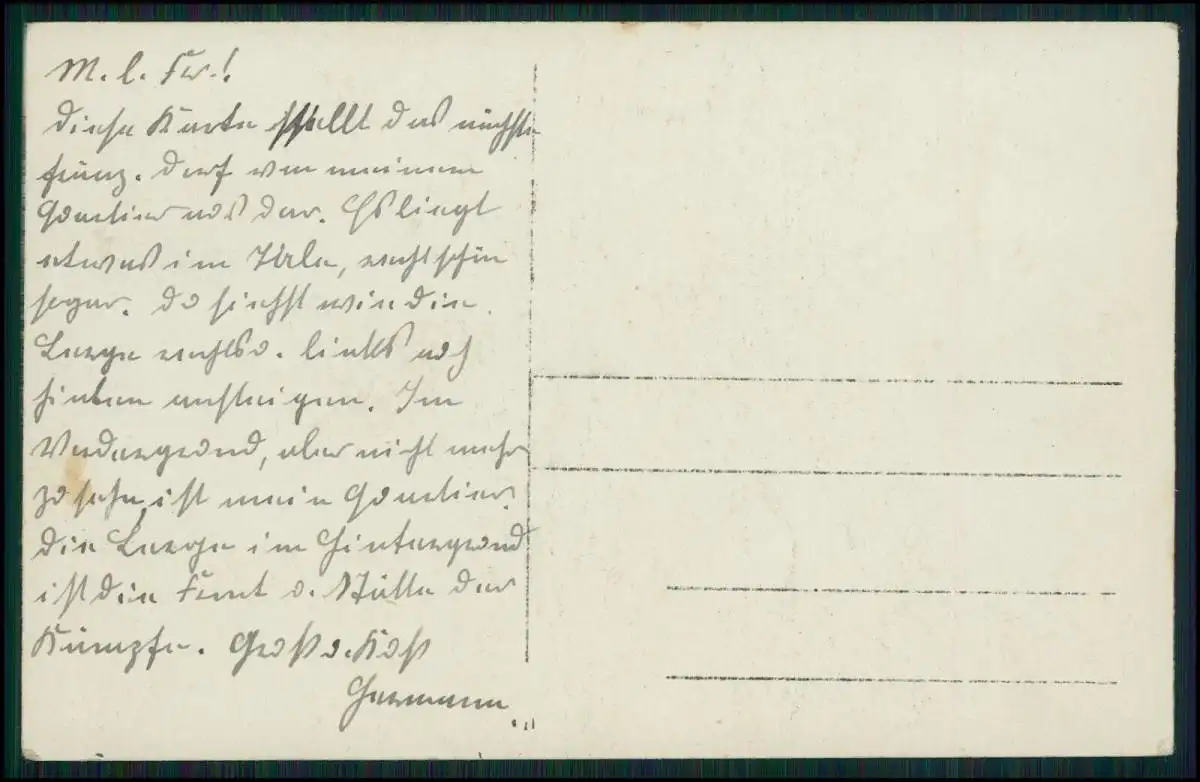 M. l. Fr.!
Diese Karte stellt das nächste
franz. Dorf von meinem
Quartier aus dar. Es liegt
etwas im Tale, recht schön
sogar. Du siehst wie die
Berge rechts u. links nach
hinten ansteigen. Im
Vordergrund, aber nicht mehr
zu sehn, ist mein Quartier.
Die Berge im Hintergrund
ist die Front u. Stätte der
Kämpfe. Gruß u. Kuß
Hermann